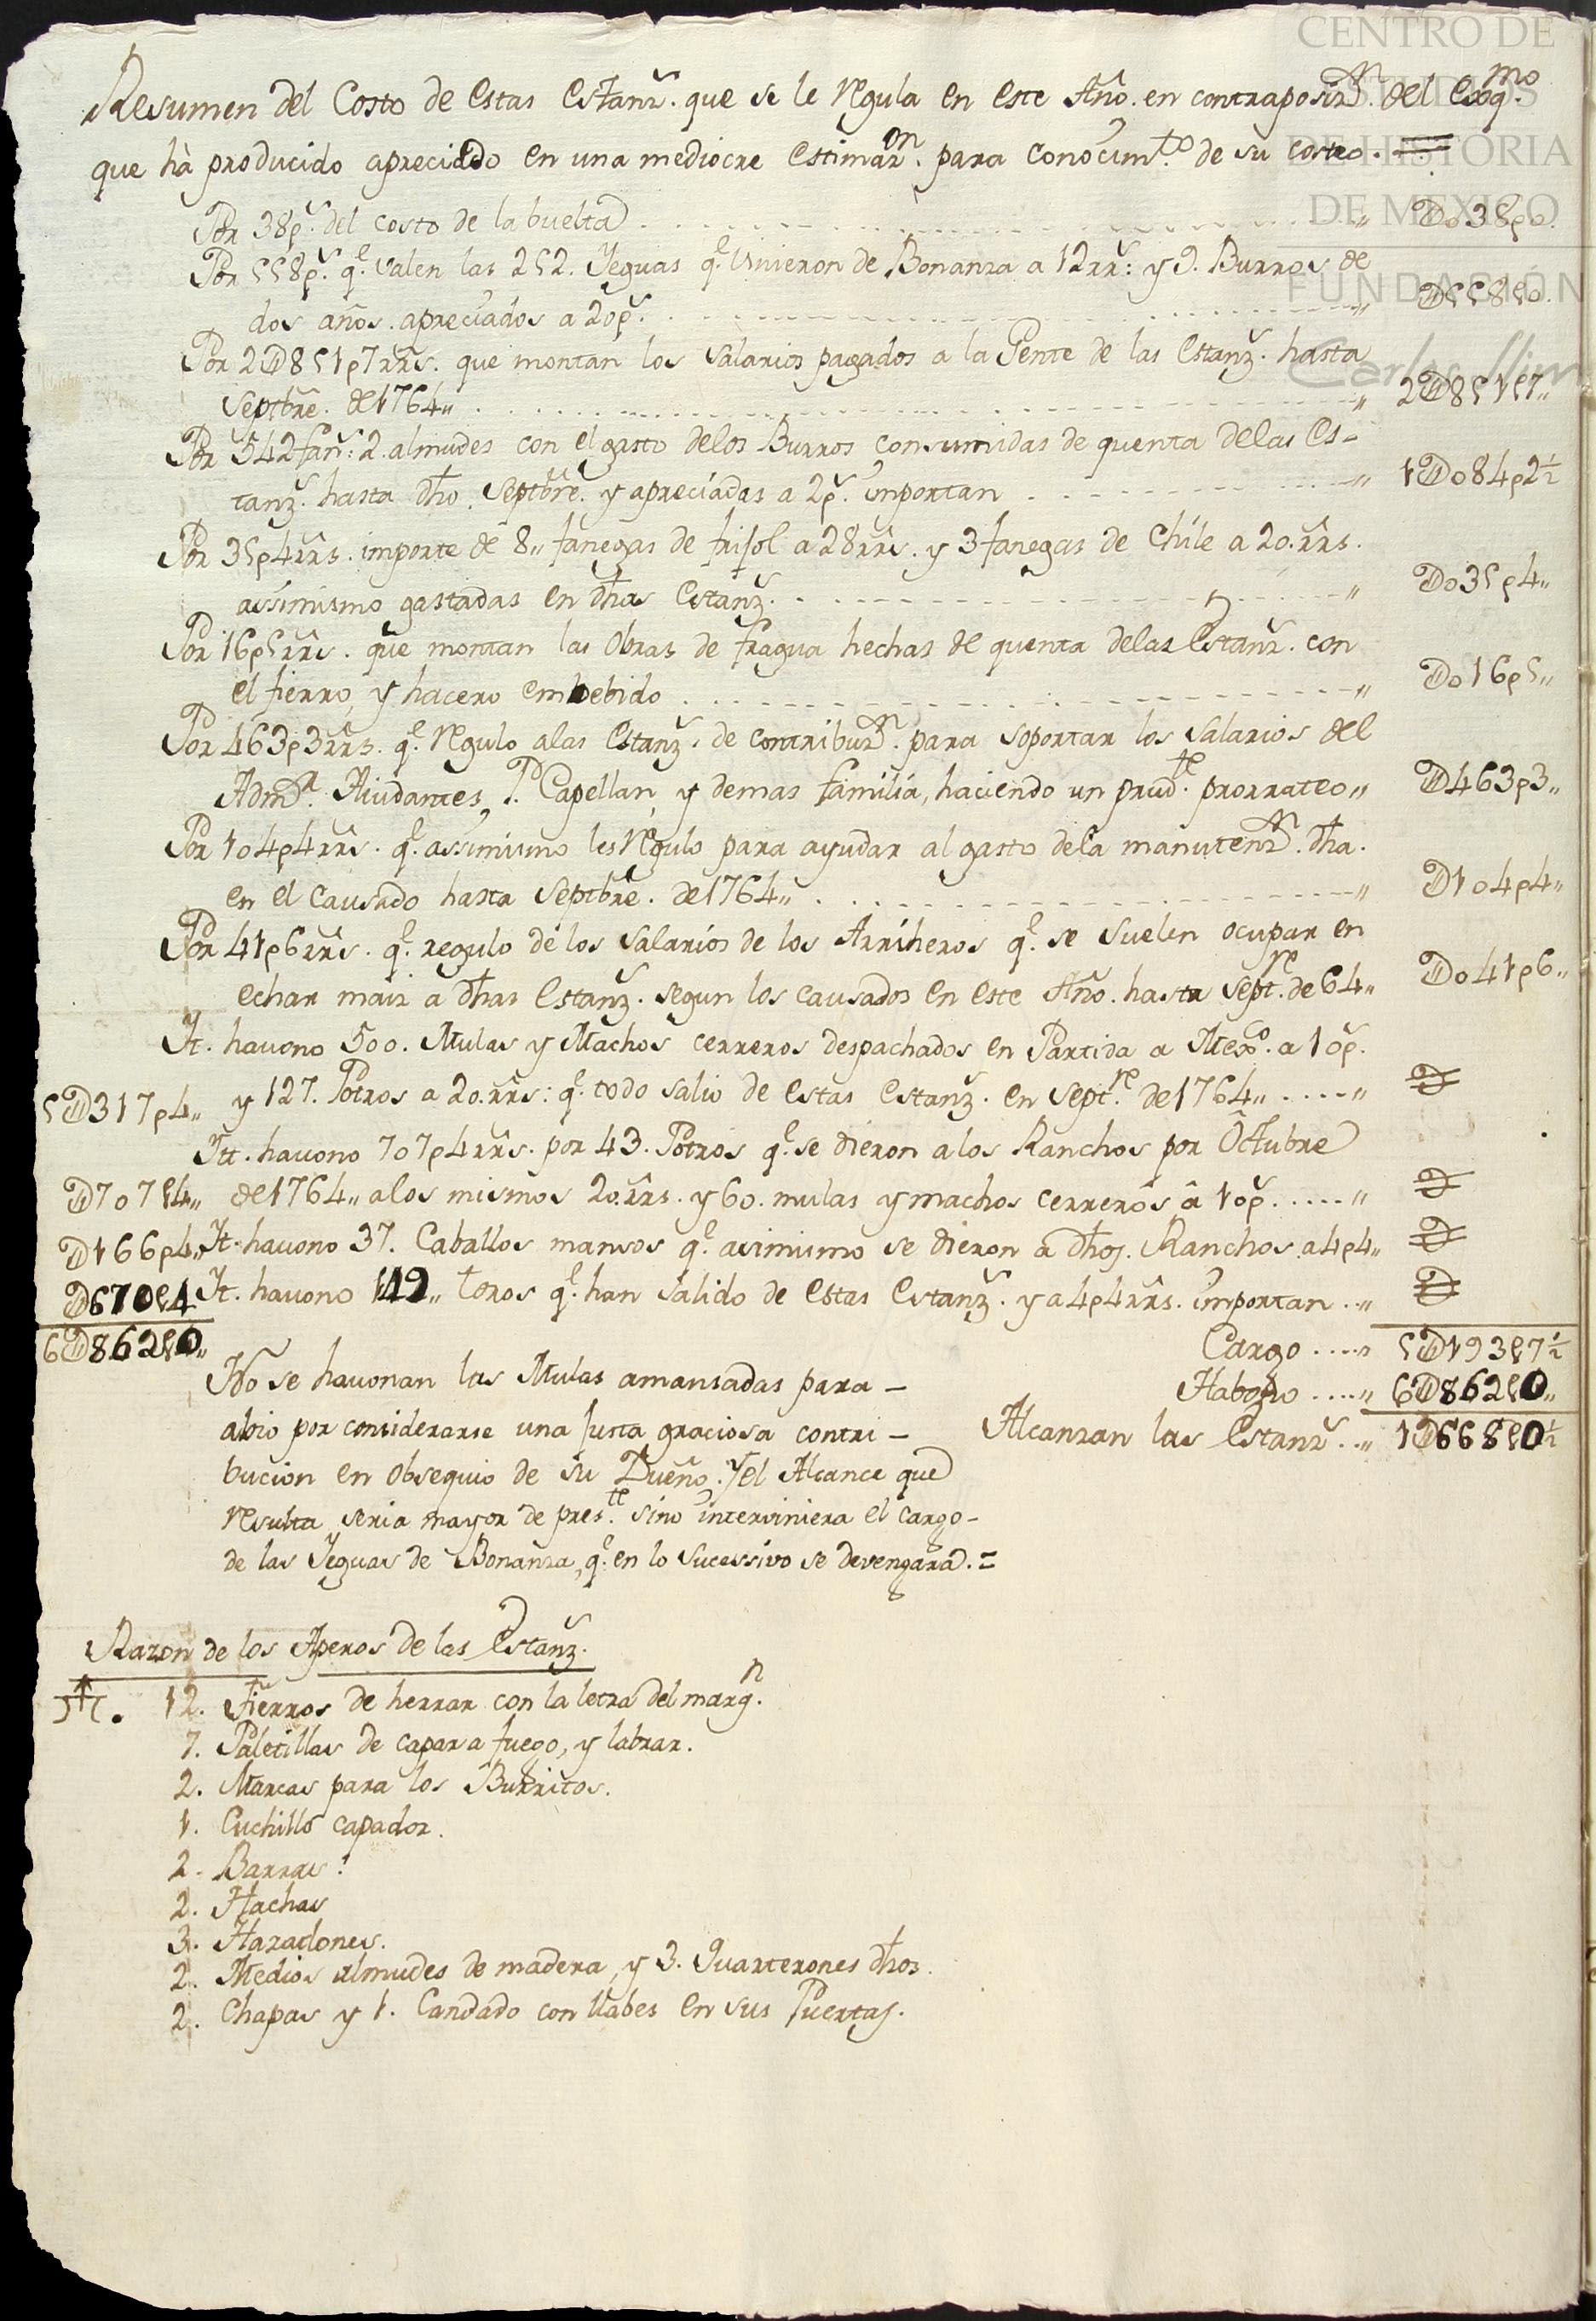 CENTRO DE
ESTUDIOS
DE HISTORIA
DE MEXICO
FUNDACIÓN
Carlos Slim
Resumen del Costo de estas estanz.s que se le regula en este Año. en contraposiz.on del
que hà producido apreciado en una mediocre estimaz.on para conocim.to de su costeo. =
Por 38p.s del costo de la buelta . . . . " D038p0.
Por 558p.s q.e valen las 252. Yeguas q.e vinieron de Bonanza a 12 rr.s: y 9. Burros de
dos años. apreciados a 20p.s . . . . " D558p0.
Por 2D851p7rrs. que montan los salarios pagados a la Gente de las Estanz.s hasta
Septbre. de 1764,, . . . . " 2D851p7,,
Por 542 fan.s: 2. almudes con el gasto delos Burros consumidas de quenta delas Es-
tanz.s hasta dho. Septbre. y apreciadas a 2p.s importan . . . . " 1D084p2½
Por 35p4rrs. importe de 8,, fanegas de frisol a 28rrs. y 3 fanegas de Chile a 20.rrs.
assimismo gastadas en dhas Estanz.s . . . . " D035p4,,
Por 16p5rrs. que montan las Obras de fragua hechas de quenta delas Estanz.s con
el fierro, y hacero embebido . . . . " D016p5,,
Por 463p3rrs. q.e regulo alas Estanz.s de contribuz.on para soportar los salarios del
Adm.or Aiudantes, P.e Capellan, y demas familia, haciendo un prud.te prorrateo,, D463p3,,
Por 104p4rrs. q.e assimismo les regulo para ayudar al gasto dela manutenz.on dha.
en el causado hasta Septbre. de 1764,, . . . . " D104p4,,
Por 41p6rrs. q.e regulo de los salarios de los Arrieros q.e se suelen ocupar en
echar maiz a dhas Estanz.s segun los causados en este Año. hasta Sept.re de 64,, D041p6,,
It. havono 500. Mulas y Machos cerreros despachados en Partida a Mex.co a 10p.s
5D317p4,, y 127. Potros a 20.rrs: q.e todo salio de estas Estanz.s en Sept.re de 1764,, ....." D
Itt. havono 707p4rrs. por 43. Potros q.e se dieron a los Ranchos por Octubre
D707p4,, de 1764,, a los mismos 20.rrs. y 60. mulas y machos cerreros â 10p.s ....." D
D166p4,, It. havono 37. Caballos mansos q.e asimismo se dieron a dhos. Ranchos a 4p4,, D
D670p4 It. havono 149,, toros q.e han salido de estas Estanz.s y a 4p4rrs. importan .." D
6D862p0,,
Cargo ....." 5D193p7½
No se havonan las Mulas amansadas para- Habono ....." 6D862p0,,
abio por considerarse una justa graciosa contri- Alcanzan las Estanz.s .." 1D668p0½
bucion en obsequio de su Dueño. Y el Alcance que
resulta seria mayor de pres.te sino interviniera el cargo-
de las Yeguas de Bonanza, q.e en lo sucessivo se devengara.=
Razon de los Aperos de las Estanz.s
12. Fierros de herrar con la letra del marg.n
7. Paletillas de capar a fuego, y labrar.
2. Marcas para los Burritos.
1. Cuchillo capador.
2. Barras.
2. Hachas
3. Hazadones.
2. Medios almudes de madera, y 3. quarterones dhos.
2. Chapas y 1. Candado con llabes en sus Puertas.